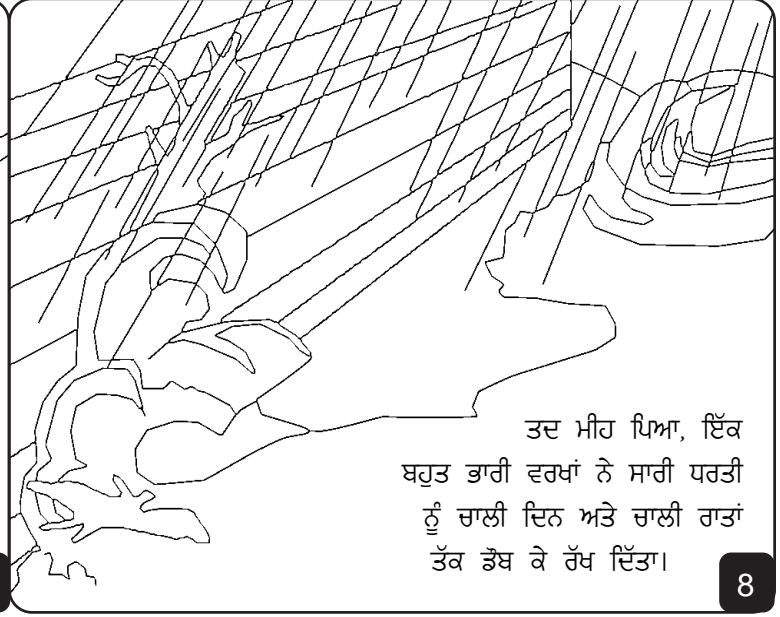 ਤਦ ਮੀਹ ਪਿਆ, ਇੱਕ
ਬਹੁਤ ਭਾਰੀ ਵਰਖਾਂ ਨੇ ਸਾਰੀ ਧਰਤੀ
ਨੂੰ ਚਾਲੀ ਦਿਨ ਅਤੇ ਚਾਲੀ ਰਾਤਾਂ
ਤੱਕ ਡੋਬ ਕੇ ਰੱਖ ਦਿੱਤਾ।
8